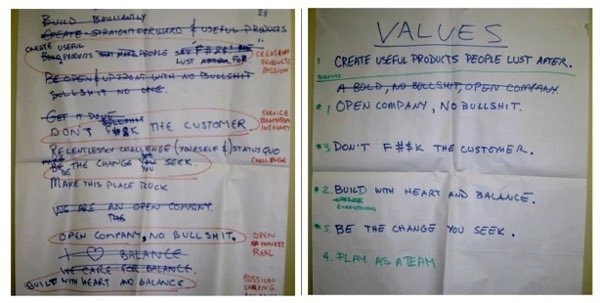 BUILD BRILLIANTLY
CREATE STRAIGHTFORWARD & USEFUL PRODUCTS
CREATE USEFUL
BUILD PRODUCTS THAT MAKE PEOPLE SAY "F#$&! ME"
LUST AFTER FOR
CREATION
PRODUCTS
PASSION
BE OPEN & UPFRONT WITH NO BULLSHIT
BULLSHIT NO ONE.
GET IT DONE
DON'T F#$K THE CUSTOMER
SERVICE
INTEGRITY
RELENTLESSLY CHALLENGE (YOURSELF &) STATUS QUO
BE THE CHANGE YOU SEEK.
BE YOU
CHALLENGE
MAKE THIS PLACE ROCK
WE ARE AN OPEN COMPANY.
THE
OPEN COMPANY, NO BULLSHIT.
OPEN
HONEST
REAL
I ♡ BALANCE
WE CARE FOR BALANCE.
BUILD WITH HEART AND BALANCE
PASSION
CARING
VALUES
1 CREATE USEFUL PRODUCTS PEOPLE LUST AFTER.
A BOLD, NO BULLSHIT, OPEN COMPANY
#1 OPEN COMPANY, NO BULLSHIT.
#3 DON'T F#$K THE CUSTOMER.
#2. BUILD WITH HEART AND BALANCE.
EVERYTHING
#5. BE THE CHANGE YOU SEEK.
4. PLAY AS A TEAM